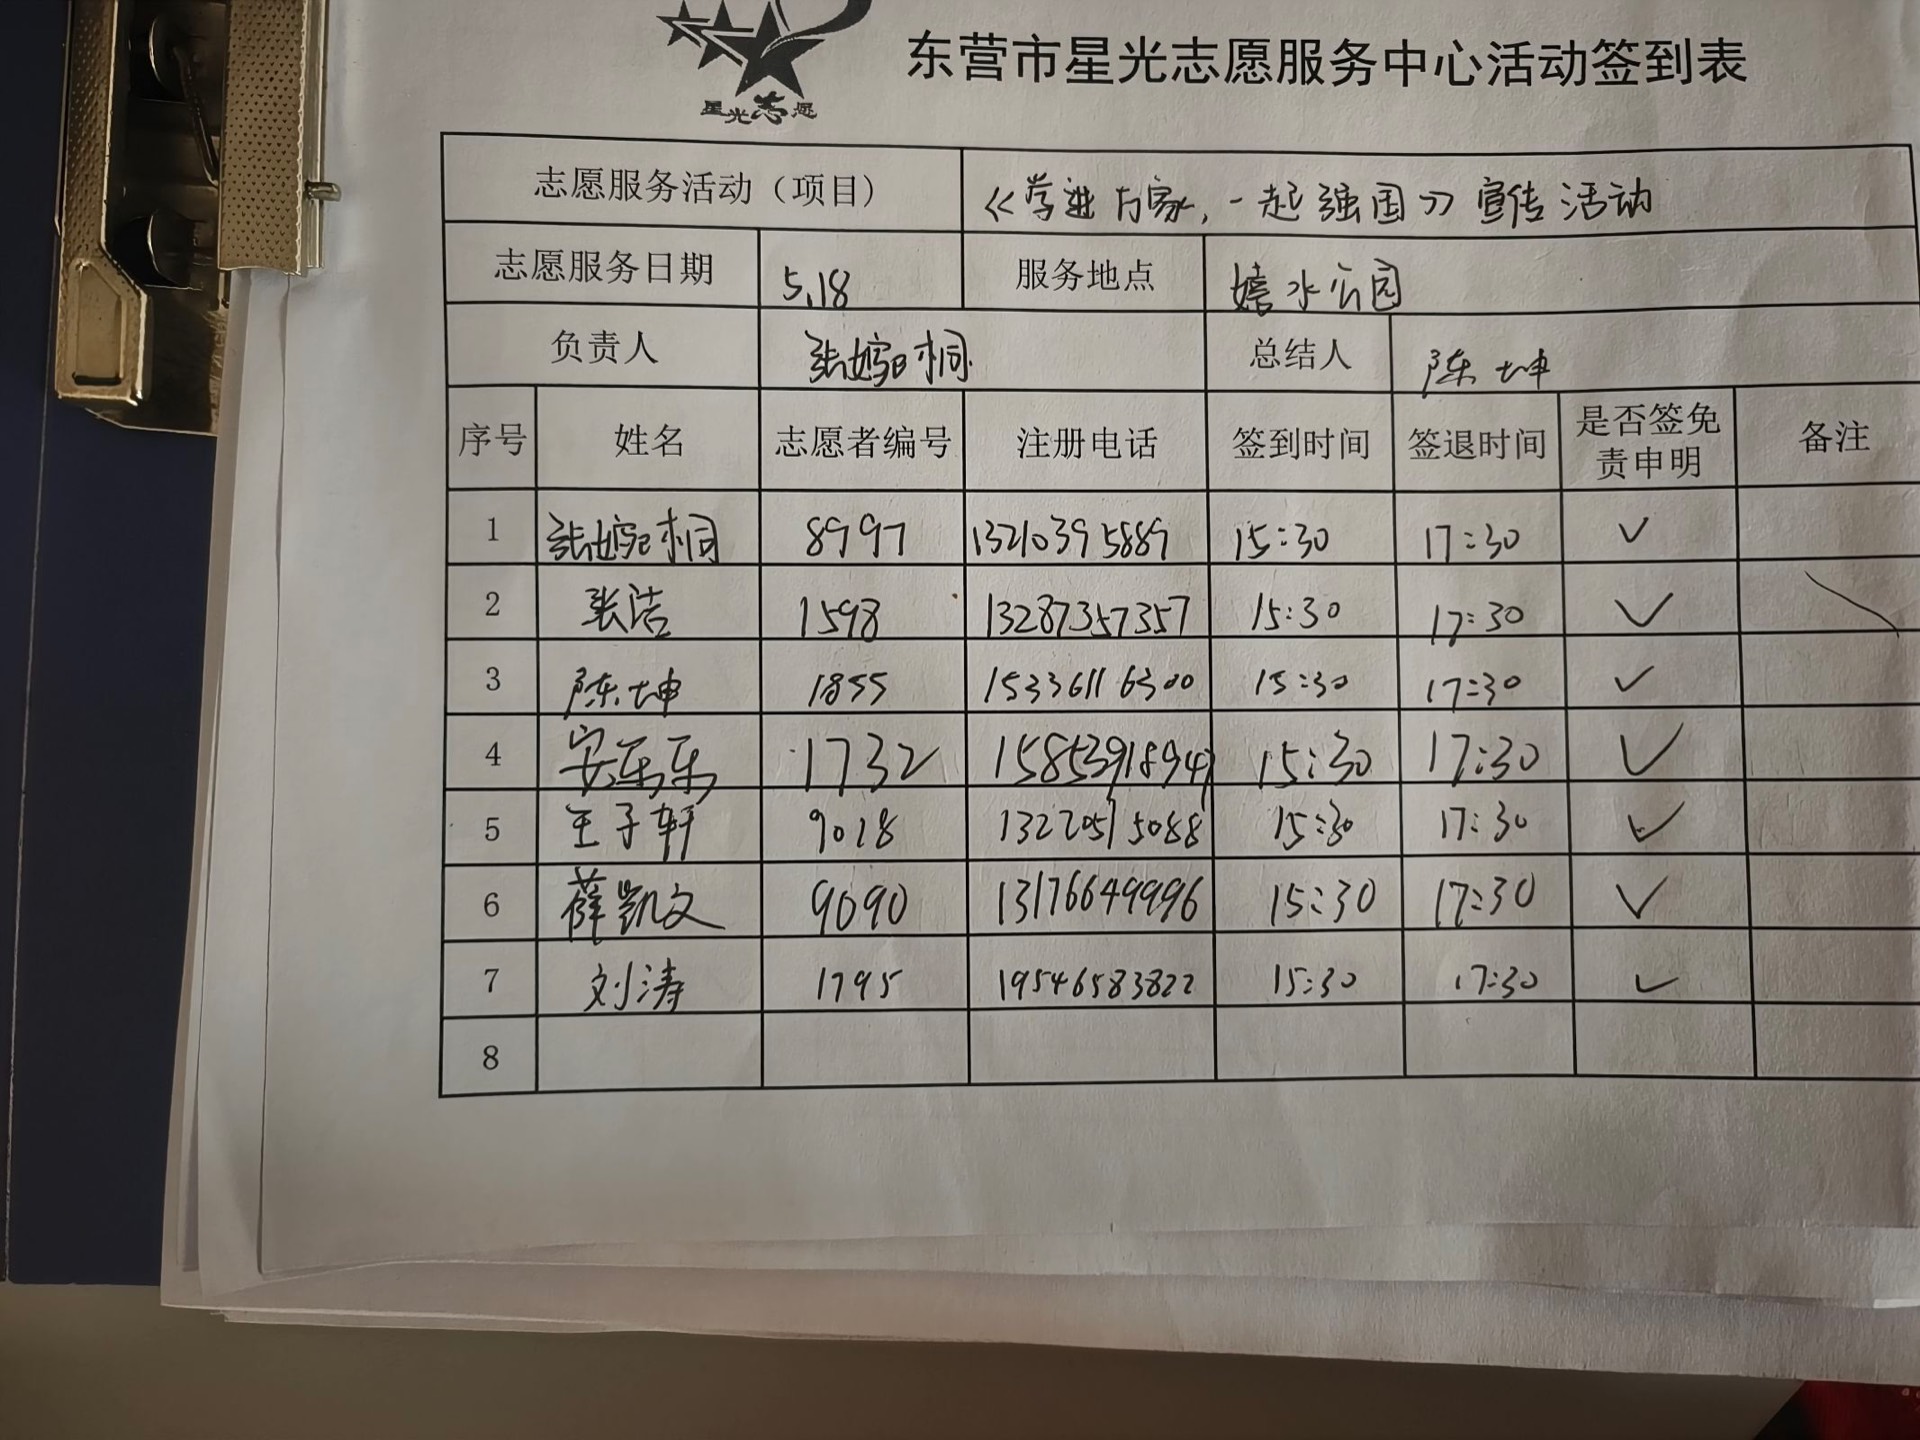 东营市星光志愿服务中心活动签到表
星光志愿
志愿服务活动（项目） 《学进万家,一起强国》宣传活动
志愿服务日期 5.18 服务地点 嬉水公园
负责人 张婉桐 总结人 陈坤
序号 姓名 志愿者编号 注册电话 签到时间 签退时间 是否签免责申明 备注
1 张婉桐 8997 13210395889 15:30 17:30 ✓
2 张洁 1598 13287357357 15:30 17:30 ✓
3 陈坤 1855 15336116300 15:30 17:30 ✓
4 安乐乐 1732 15853918947 15:30 17:30 ✓
5 王子轩 9018 13220515088 15:30 17:30 ✓
6 薛凯文 9090 13176649996 15:30 17:30 ✓
7 刘涛 1795 19546583822 15:30 17:30 ✓
8